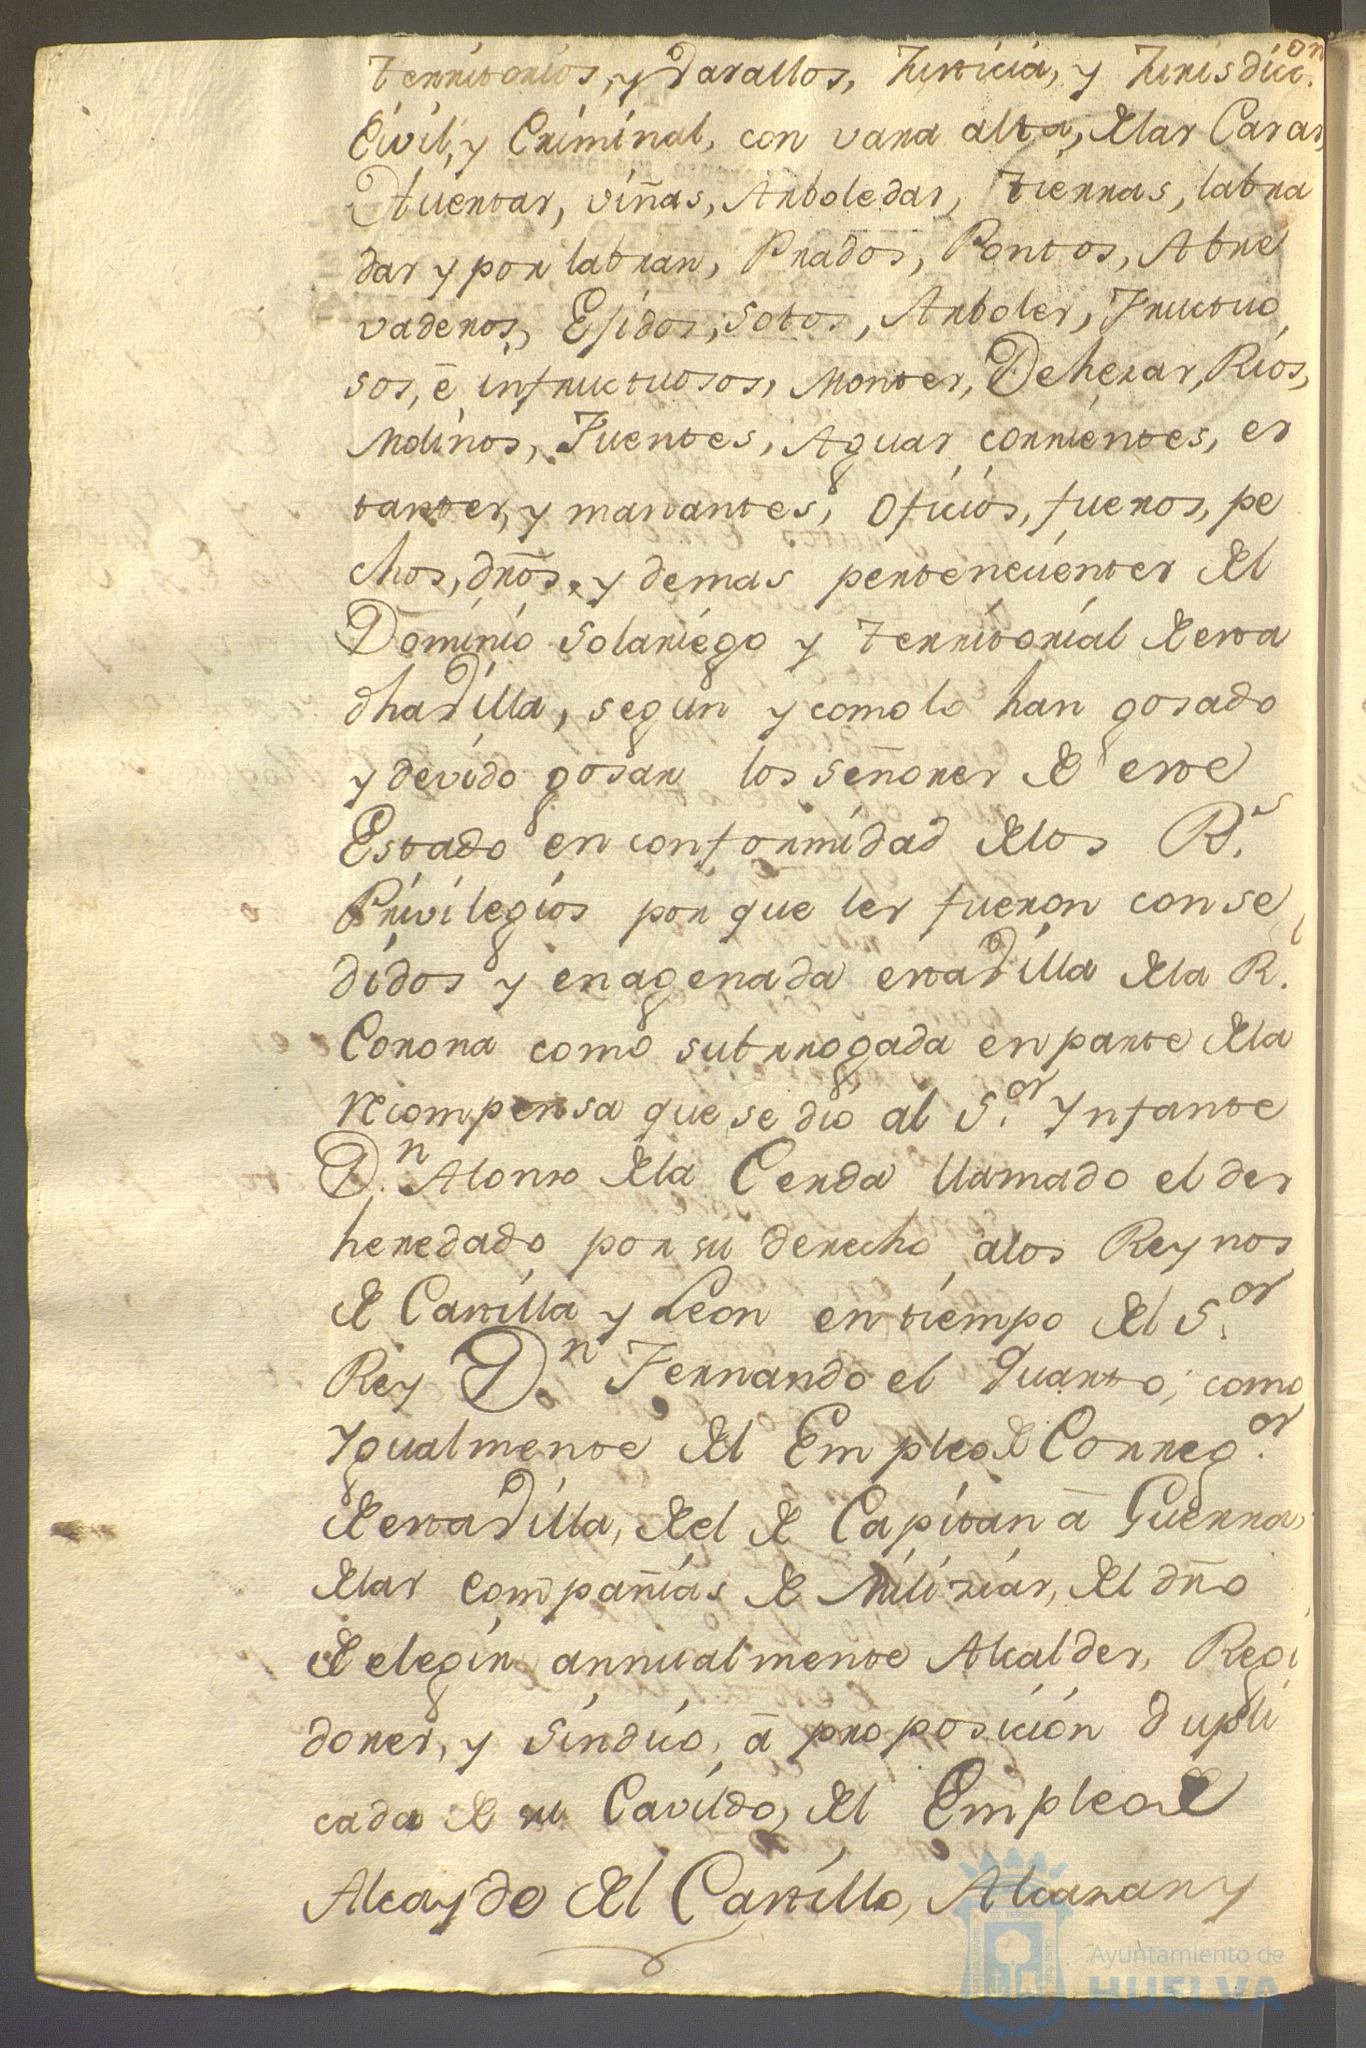 territorios, y Vasallos, Justicia, y Jurisdicc.on
Civil, y Criminal, con vara alta, de las Casas,
Huertas, viñas, Arboledas, tierras, labra
das y por labrar, Prados, Pontos, Abre
vaderos, Esidos, Sotos, Arboles, Fructuo
sos, é infructuosos, Montes, Dehezas, Rios,
Molinos, Fuentes, Aguas, corrientes, es
tantes, y manantes, Oficios, fueros, pe
chos, dros, y demas pertenecientes del
Dominio Solariego y territorial de esta
dha Villa, segun y como lo han gosado
y devido gosar los señores de este
Estado en conformidad de los R.s
Privilegios por que les fueron conse
didos y enagenada esta Villa de la R.l
Corona como subrrogada en parte de la
recompensa que se dio al S.or Ynfante
D.n Alonso de la Cerda llamado el des
heredado por su derecho alos Reynos
de Castilla y Leon en tiempo del S.or
Rey D.n Fernando el Quarto; como
Ygualmente del Empleo de Correg.or
de esta Villa, de el de Capitan á Guerra,
de las Compañias de Milizias, del dro
de elegir annualmente Alcaldes, Regi
dores, y Sindico, á proposicion dupli
cada de su Cavildo, del Empleo de
Alcayde del Castillo, Alcazar y
Ayuntamiento de
HUELVA